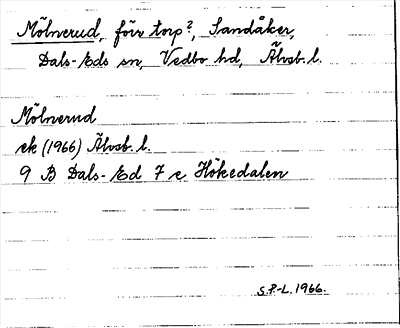 Mölnerud, förv torp?, Sandåker,
Dals-Eds sn, Vedbo hd, Älvsb. l.
Mölnerud
ek (1966) Älvsb. l.
9 B Dals-Ed 7 c Hökedalen
S.P-L. 1966.